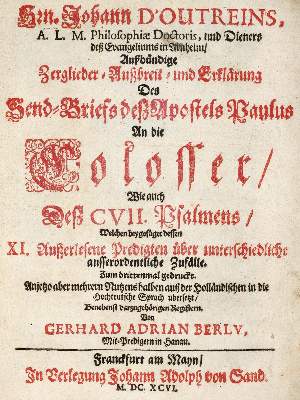 Hrn. Johann D'OUTREINS,
A. L. M. Philosophiæ Doctoris, und Dieners
deß Evangeliums in Arnheim/
Außbündige
Zerglieder-Außbreit- und Erklärung
Des
Send-Briefs deß Apostels Paulus
An die
Colosser/
Wie auch
Deß CVII. Psalmens/
Welchen beygefüget dessen
XI. Außerlesene Predigten über unterschiedliche
ausserordentliche Zufälle.
Zum drittenmal gedruckt.
Anjetzo aber mehrern Nutzens halben auß der Holländischen in die
Hochteutsche Sprach übersetzt/
Benebenst darzugehörigen Registern.
Von
GERHARD ADRIAN BERLV,
Mit-Predigern in Hanau.
Franckfurt am Mayn/
In Verlegung Johann Adolph von Sand.
M. DC. XCVI.